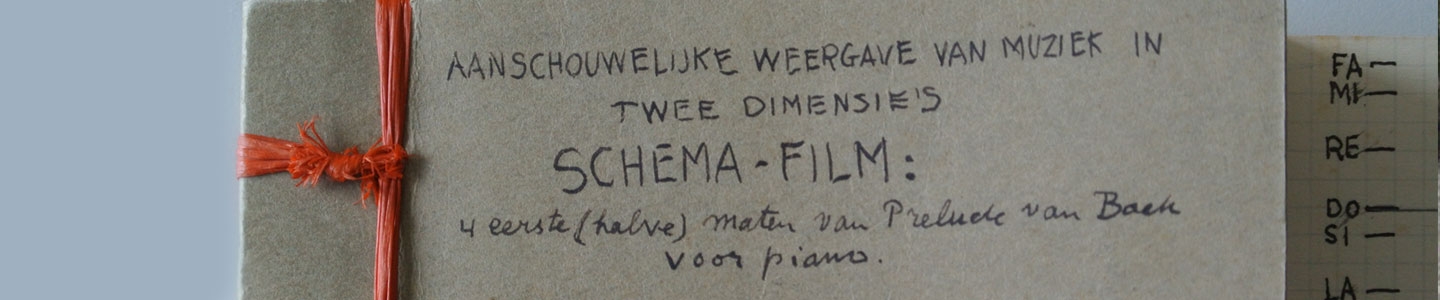 AANSCHOUWELIJKE WEERGAVE VAN MUZIEK IN
TWEE DIMENSIE'S
SCHEMA-FILM:
4 eerste (halve) maten van Prelude van Bach
voor piano.
FA
MI
RE
DO
SI
LA